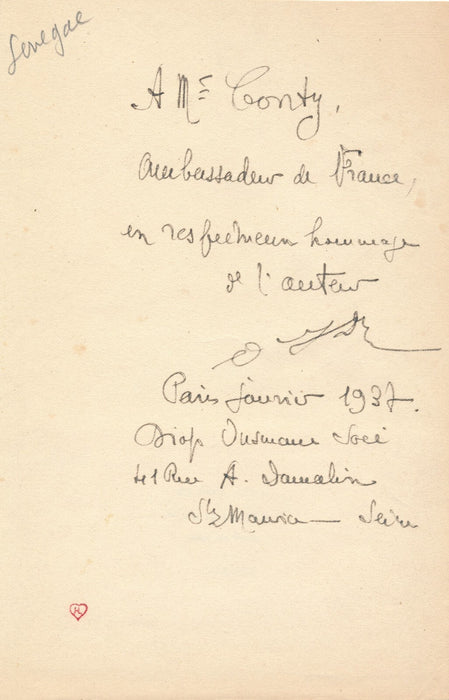 Senegal
A Mr Conty,
Ambassadeur de France,
en respectueux hommage
de l'auteur
Paris janvier 1937.
Diop Ousmane Socé
41 Rue A. Damalix
St Maurice — Seine